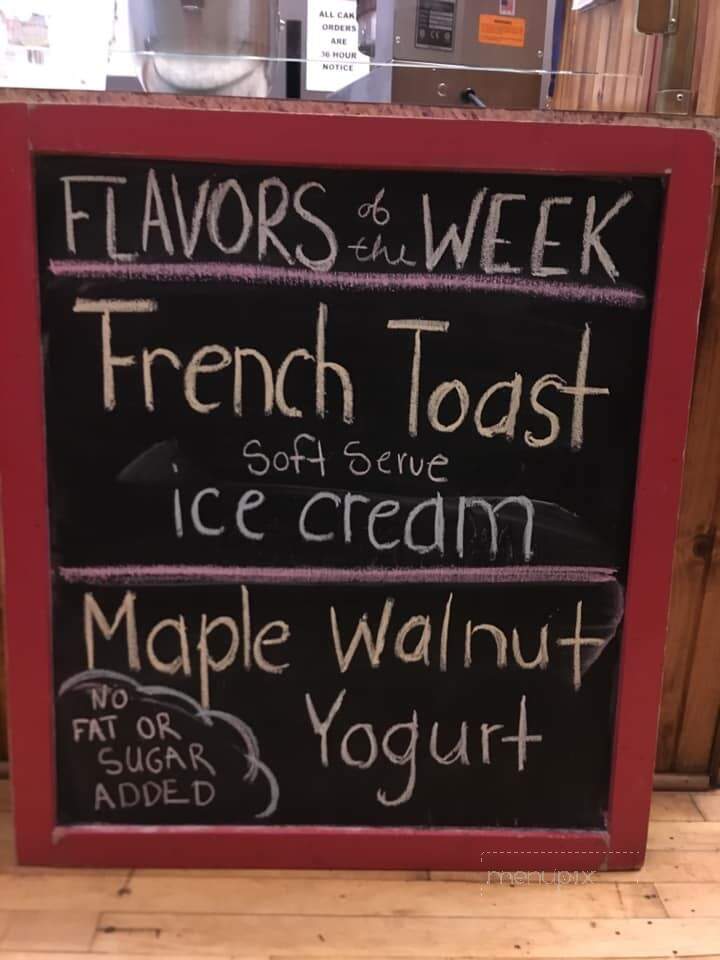 ALL CAKE
ORDERS
ARE
36 HOUR
NOTICE
FLAVORS of the WEEK
French Toast
Soft Serve
ice cream
Maple Walnut
Yogurt
NO
FAT OR
SUGAR
ADDED
menupix